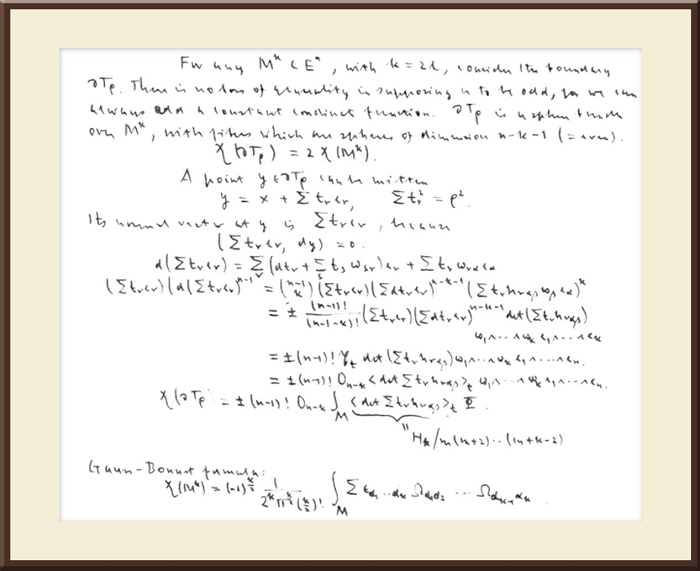 For any Mᵏ ⊂ Eⁿ, with k = 2l, consider its boundary
∂Tρ. There is no loss of generality in supposing n to be odd, for we can
always add a constant function. ∂Tρ is a sphere bundle
over Mᵏ, with fibers which are spheres of dimension n-k-1 (= even).
χ(∂Tρ) = 2χ(Mᵏ).
A point y ∈ ∂Tρ can be written
y = x + Σ tᵣeᵣ, Σtᵣ² = ρ².
Its normal vector at y is Σtᵣeᵣ, because
(Σtᵣeᵣ, dy) = 0.
d(Σtᵣeᵣ) = Σ(dtᵣ + Σ tₛ ωₛᵣ)eᵣ + Σ tᵣ ωᵣα eα
(Σtᵣeᵣ)(d(Σtᵣeᵣ))ⁿ⁻¹ = (n-1 k)(Σtᵣeᵣ)(Σdtᵣeᵣ)ⁿ⁻ᵏ⁻¹(Σtᵣhᵣαβ ωβ eα)ᵏ
= ± (n-1)!/(n-1-k)! (Σtᵣeᵣ)(Σdtᵣeᵣ)ⁿ⁻ᵏ⁻¹ det(Σtᵣhᵣαβ)
ω₁∧…∧ωₖ e₁∧…∧eₖ
= ±(n-1)! det(Σtᵣhᵣαβ) ω₁∧…∧ωₖ e₁∧…∧eₙ.
= ±(n-1)! Oₙ₋ₖ <det Σtᵣhᵣαβ>ₜ ω₁∧…∧ωₖ e₁∧…∧eₙ.
χ(∂Tρ) = ±(n-1)! Oₙ₋ₖ ∫_M <det Σtᵣhᵣαβ>ₜ Φ.
" Hₖ/m(m+2)…(m+k-2)
Gauss-Bonnet formula:
χ(Mᵏ) = (-1)^(k/2) 1/(2ᵏ π^(k/2) (k/2)!) ∫_M Σ εα₁…αₖ Ωα₁α₂ … Ωαₖ₋₁αₖ